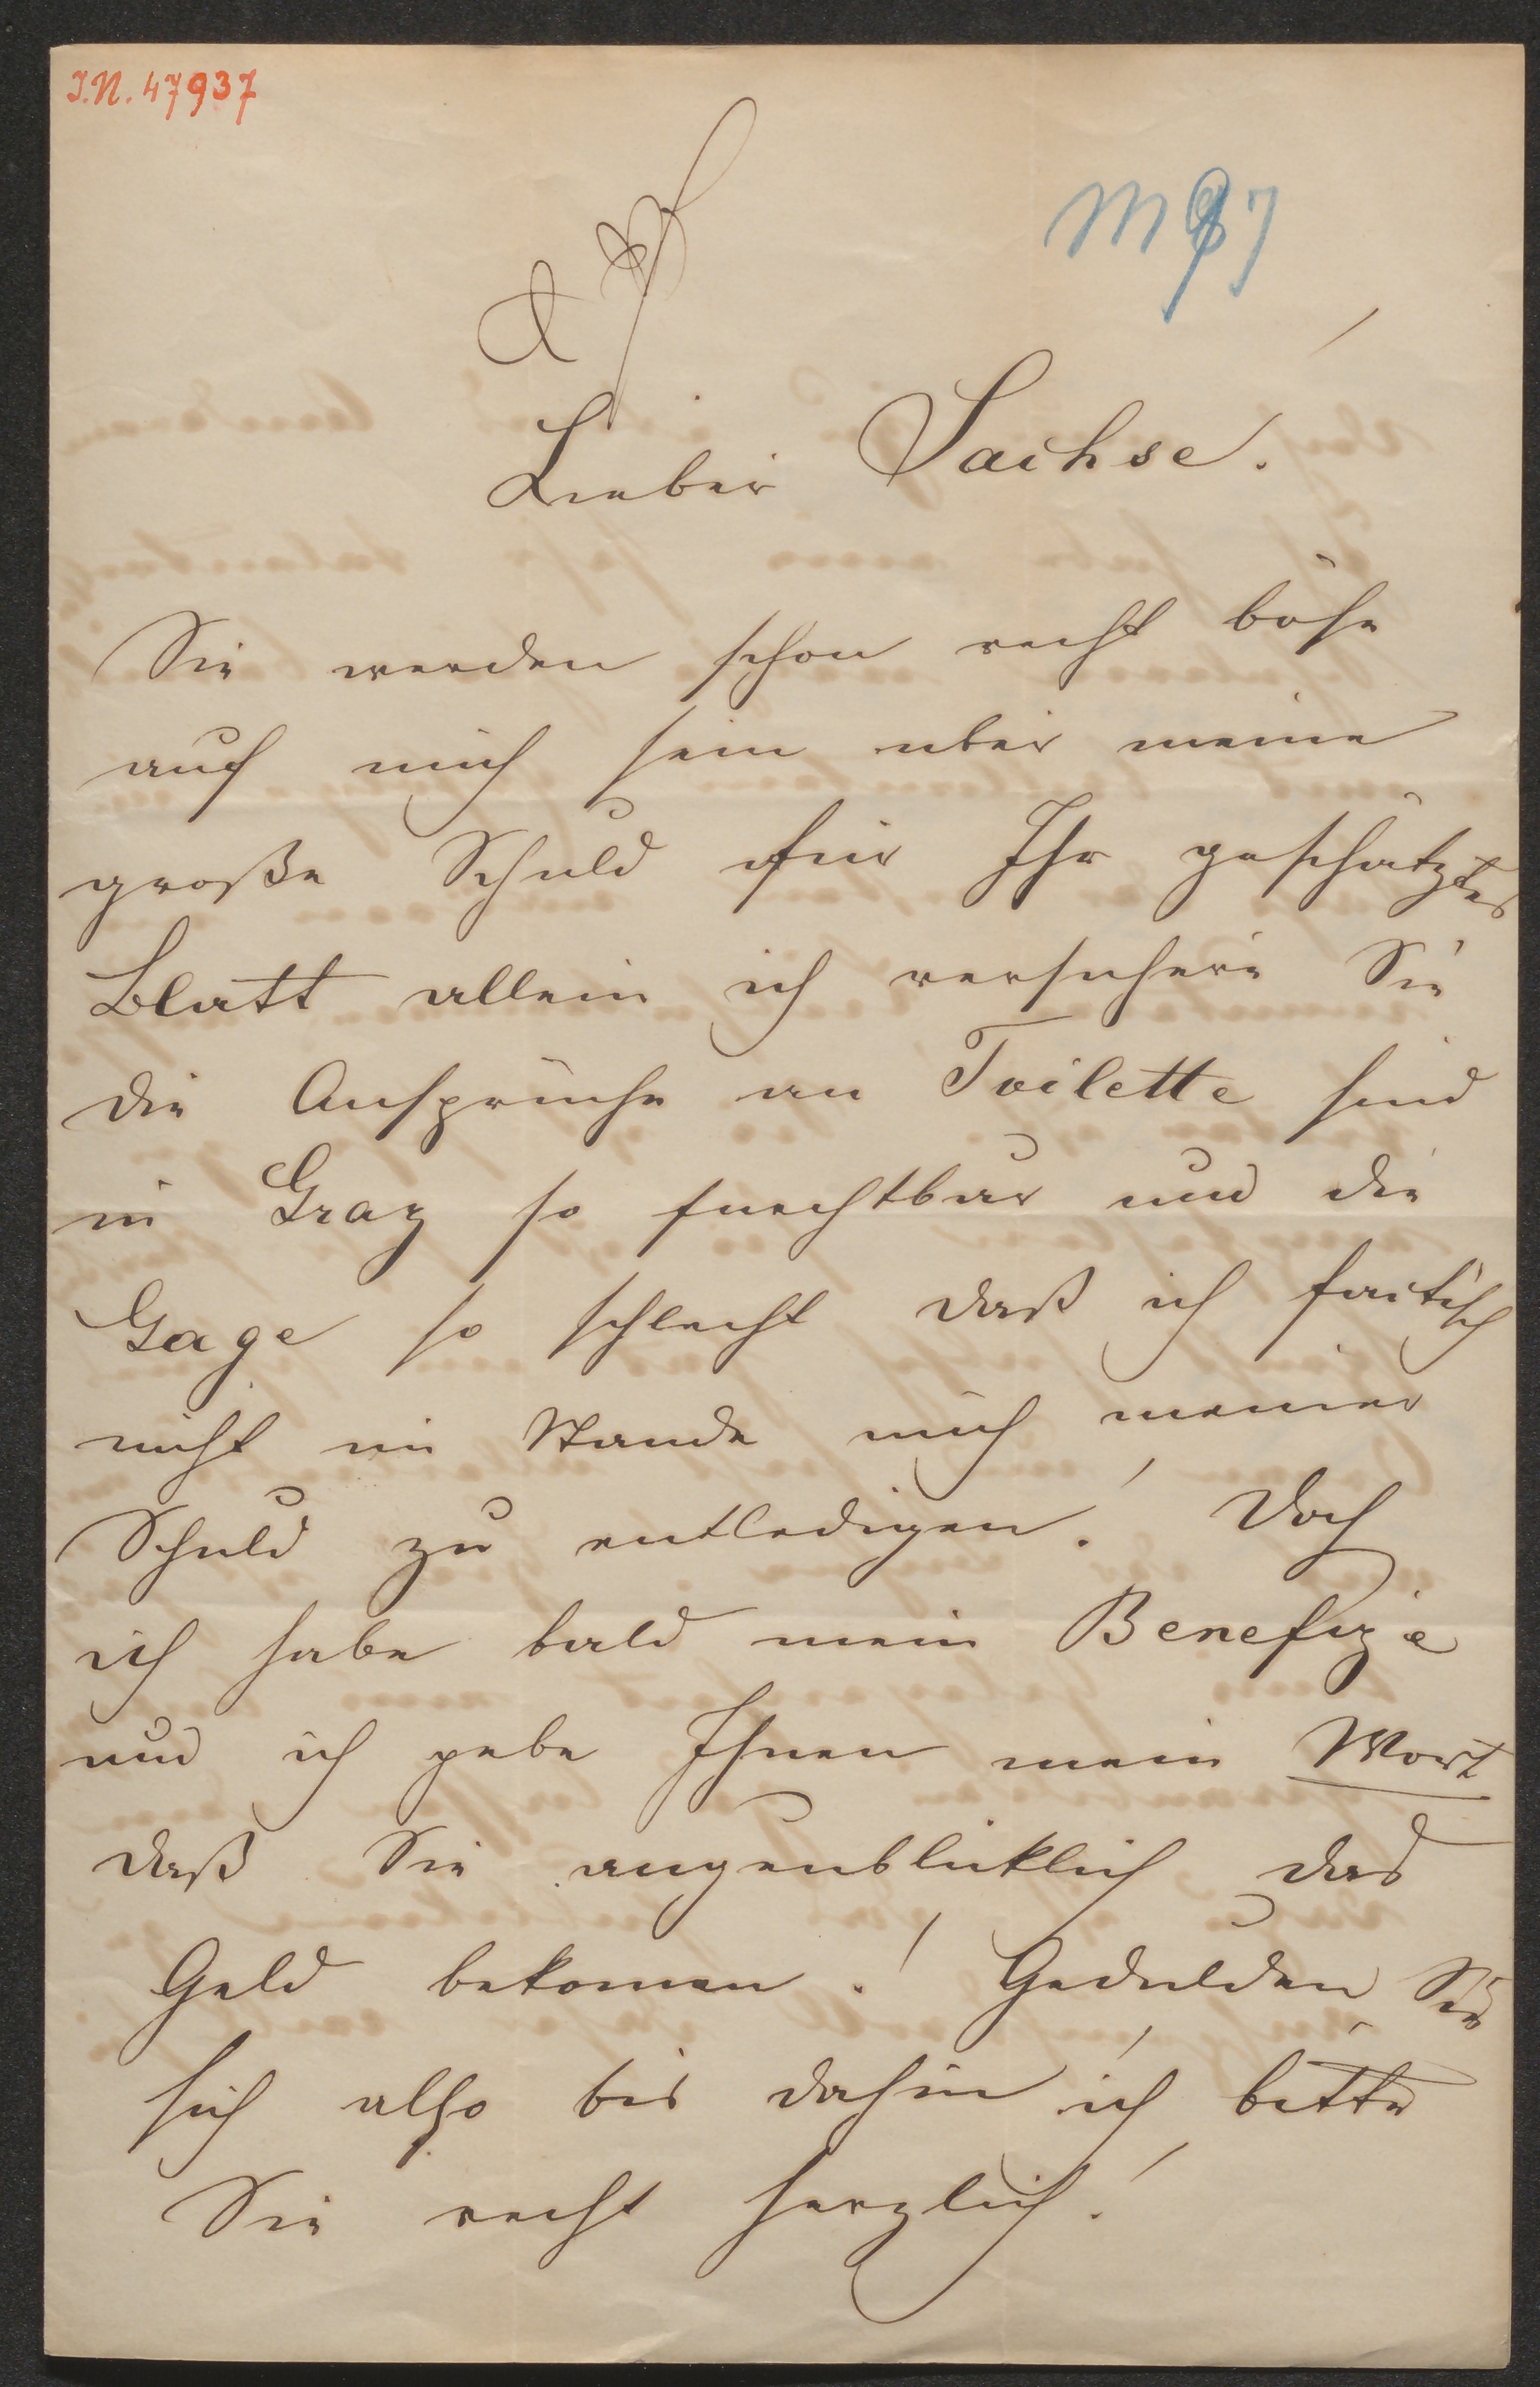 I.N. 47937
Lieber Sachse!
Sie werden schon recht böse
auf mich sein über meine
große Schuld für Ihr geschätztes
Blatt allein ich versichere Sie
die Ansprüche an Toilette sind
in Graz so furchtbar und die
Gage so schlecht daß ich factisch
nicht im Stande mich meiner
Schuld zu entledigen! Doch
ich habe bald mein Benefize
und ich gebe Ihnen mein Wort
daß Sie augenblicklich das
Geld bekomen! Gedulden Sie
sich also bis dahin ich bitte
Sie recht herzlich!